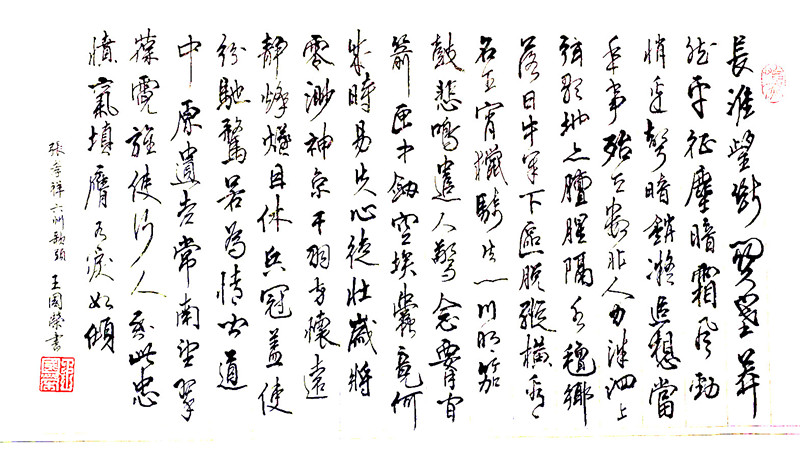 長淮望斷關塞莽
然平征塵暗霜風勁
悄邊聲暗銷凝追想當
年事殆天數非人力洙泗上
弦歌地亦膻腥隔水氈鄉
落日牛羊下區脫縱橫看
名王宵獵騎火一川明笳
鼓悲鳴遣人驚念腰間
箭匣中劍空埃蠹竟何
成時易失心徒壯歲將
零渺神京干羽方懷遠
靜烽燧且休兵冠蓋使
紛馳騖若為情聞道
中原遺老常南望翠
葆霓旌使行人到此忠
憤氣填膺有淚如傾
張孝祥六州歌頭 王國榮書